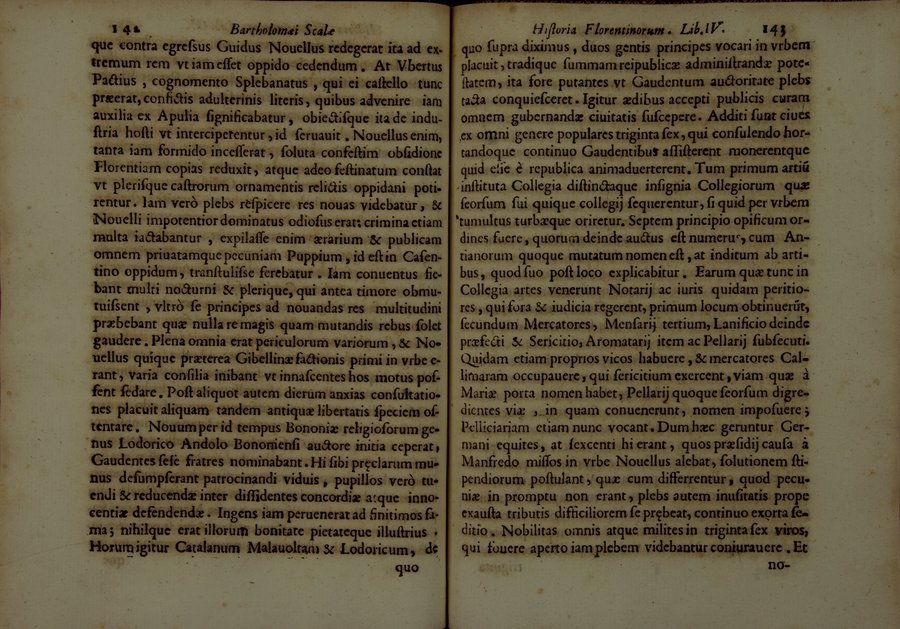 142 Bartholomæi Scalæ
que contra egreſsus Guidus Nouellus redegerat ita ad ex-
tremum rem vt iam eſſet oppido cedendum. At Vbertus
Pactius, cognomento Splebanatus, qui ei caſtello tunc
præerat, confictis adulterinis literis, quibus advenire iam
auxilia ex Apulia ſignificabatur, obiectiſque ita de indu-
ſtria hoſti vt interciperentur, id ſeruauit. Nouellus enim,
tanta iam formido inceſſerat, ſoluta confeſtim obſidione
Florentiam copias reduxit, atque adeo feſtinatum conſtat
vt pleriſque caſtrorum ornamentis relictis oppidani poti-
rentur. Iam verò plebs reſpicere res nouas videbatur, &
Nouelli impotentior dominatus odioſus erat; crimina etiam
multa iactabantur, expilaſſe enim ærarium & publicam
omnem priuatamque pecuniam Puppium, id eſt in Caſen-
tino oppidum, tranſtuliſse ferebatur. Iam conuentus fie-
bant multi nocturni & plerique, qui antea timore obmu-
tuiſsent, vltrò ſe principes ad nouandas res multitudini
præbebant quæ nulla re magis quam mutandis rebus ſolet
gaudere. Plena omnia erat periculorum variorum, & No-
uellus quique præterea Gibellinæ factionis primi in vrbe e-
rant, varia conſilia inibant vt innaſcentes hos motus poſ-
ſent ſedare. Poſt aliquot autem dierum anxias conſultatio-
nes placuit aliquam tandem antiquæ libertatis ſpeciem oſ-
tentare. Nouum per id tempus Bononiæ religioſorum ge-
nus Lodorico Andolo Bononienſi auctore initia ceperat,
Gaudentes ſeſe fratres nominabant. Hi ſibi pręclarum mu-
nus deſumpſerant patrocinandi viduis, pupillos verò tu-
endi & reducendæ inter diſſidentes concordiæ atque inno-
centiæ defendendæ. Ingens iam peruenerat ad finitimos fa-
ma; nihilque erat illorum bonitate pietateque illuſtrius.
Horum igitur Catalanum Malauoltam & Lodoricum, de
quo
Hiſtoria Florentinorum. Lib. IV. 143
quo ſupra diximus, duos gentis principes vocari in vrbem
placuit, tradique ſummam reipublicæ adminiſtrandæ pote-
ſtatem, ita fore putantes vt Gaudentum auctoritate plebs
tacta conquieſceret. Igitur ædibus accepti publicis curam
omnem gubernandæ ciuitatis ſuſcepere. Additi ſunt ciues
ex omni genere populares triginta ſex, qui conſulendo hor-
tandoque continuo Gaudentibus aſſiſterent monerentque
quid eſſe è republica animaduerterent. Tum primum artiū
inſtituta Collegia diſtinctaque inſignia Collegiorum quæ
ſeorſum ſui quique collegij ſequerentur, ſi quid per vrbem
tumultus turbæque oriretur. Septem principio opificum or-
dines fuere, quorum deinde auctus eſt numerus, cum An-
tianorum quoque mutatum nomen eſt, at inditum ab arti-
bus, quod ſuo poſt loco explicabitur. Earum quæ tunc in
Collegia artes venerunt Notarij ac iuris quidam peritio-
res, qui fora & iudicia regerent, primum locum obtinuerūt,
ſecundum Mercatores, Menſarij tertium, Lanificio deinde
præfecti & Sericitio, Aromatarij item ac Pellarij ſubſecuti.
Quidam etiam proprios vicos habuere, & mercatores Cal-
limaram occupauere, qui ſericitium exercent, viam quæ à
Mariæ porta nomen habet, Pellarij quoque ſeorſum digre-
dientes viæ, in quam conuenerunt, nomen impoſuere;
Pelliciariam etiam nunc vocant. Dum hæc geruntur Ger-
mani equites, at ſexcenti hi erant, quos præſidij cauſa à
Manfredo miſſos in vrbe Nouellus alebat, ſolutionem ſti-
pendiorum poſtulant, quæ cum differrentur, quod pecu-
niæ in promptu non erant, plebs autem inuſitatis prope
exauſta tributis difficiliorem ſe prębeat, continuo exorta ſe-
ditio. Nobilitas omnis atque milites in triginta ſex viros,
qui fouere aperto iam plebem videbantur coniurauere. Et
no-